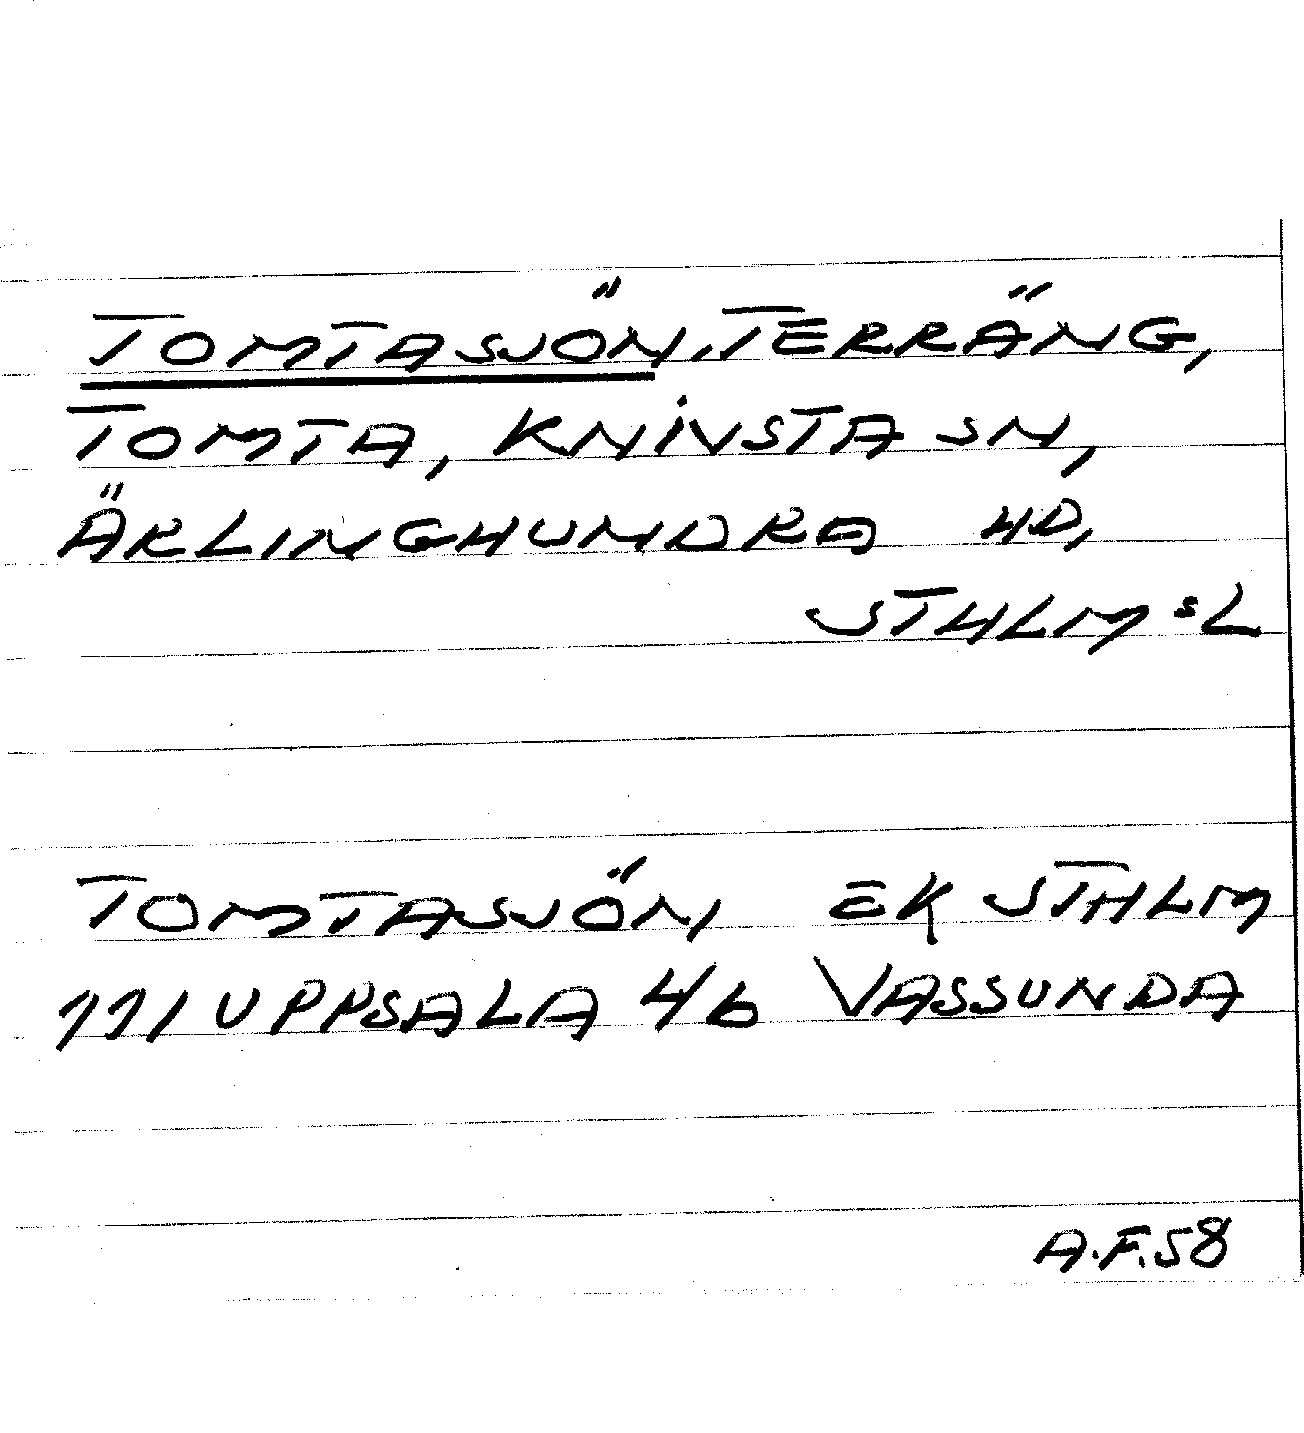 TOMTASJÖN, TERRÄNG,
TOMTA, KNIVSTA SN,
ÄRLINGHUNDRA HD,
STHLM:S L
TOMTASJÖN EK STHLM
111 UPPSALA 46 VASSUNDA
A.F. 58